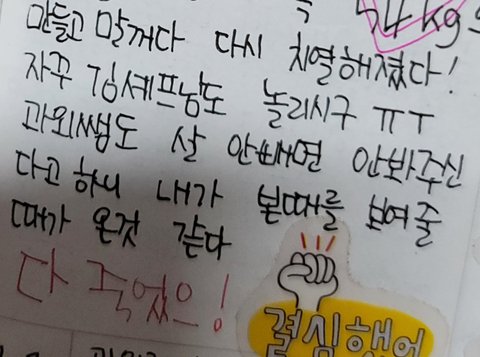 54 kg
만들고 말꺼다 다시 치열해졌다!
자꾸 김셰프님도 놀리시구 ㅠㅜ
과외쌤도 살 안빼면 안봐주신
다고 하니 내가 본때를 보여줄
때가 온것 같다
다 죽었으!
결심했어